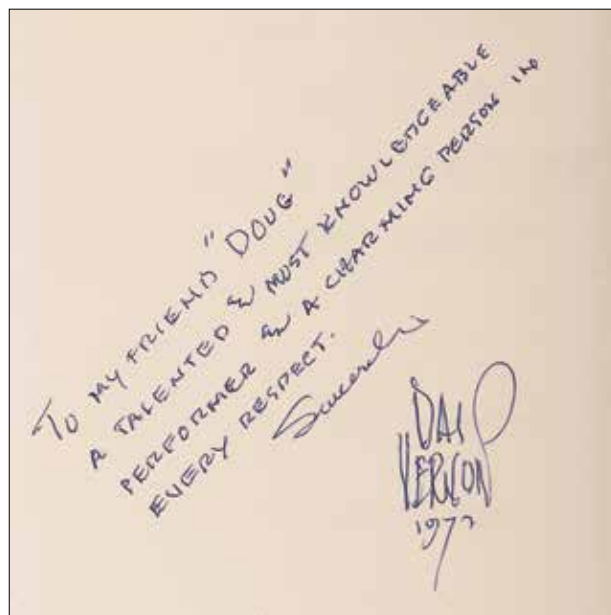 TO MY FRIEND "DOUG"
A TALENTED & MOST KNOWLEDGEABLE
PERFORMER & A CHARMING PERSON IN
EVERY RESPECT.
Sincerely
DAI
VERNON
1977